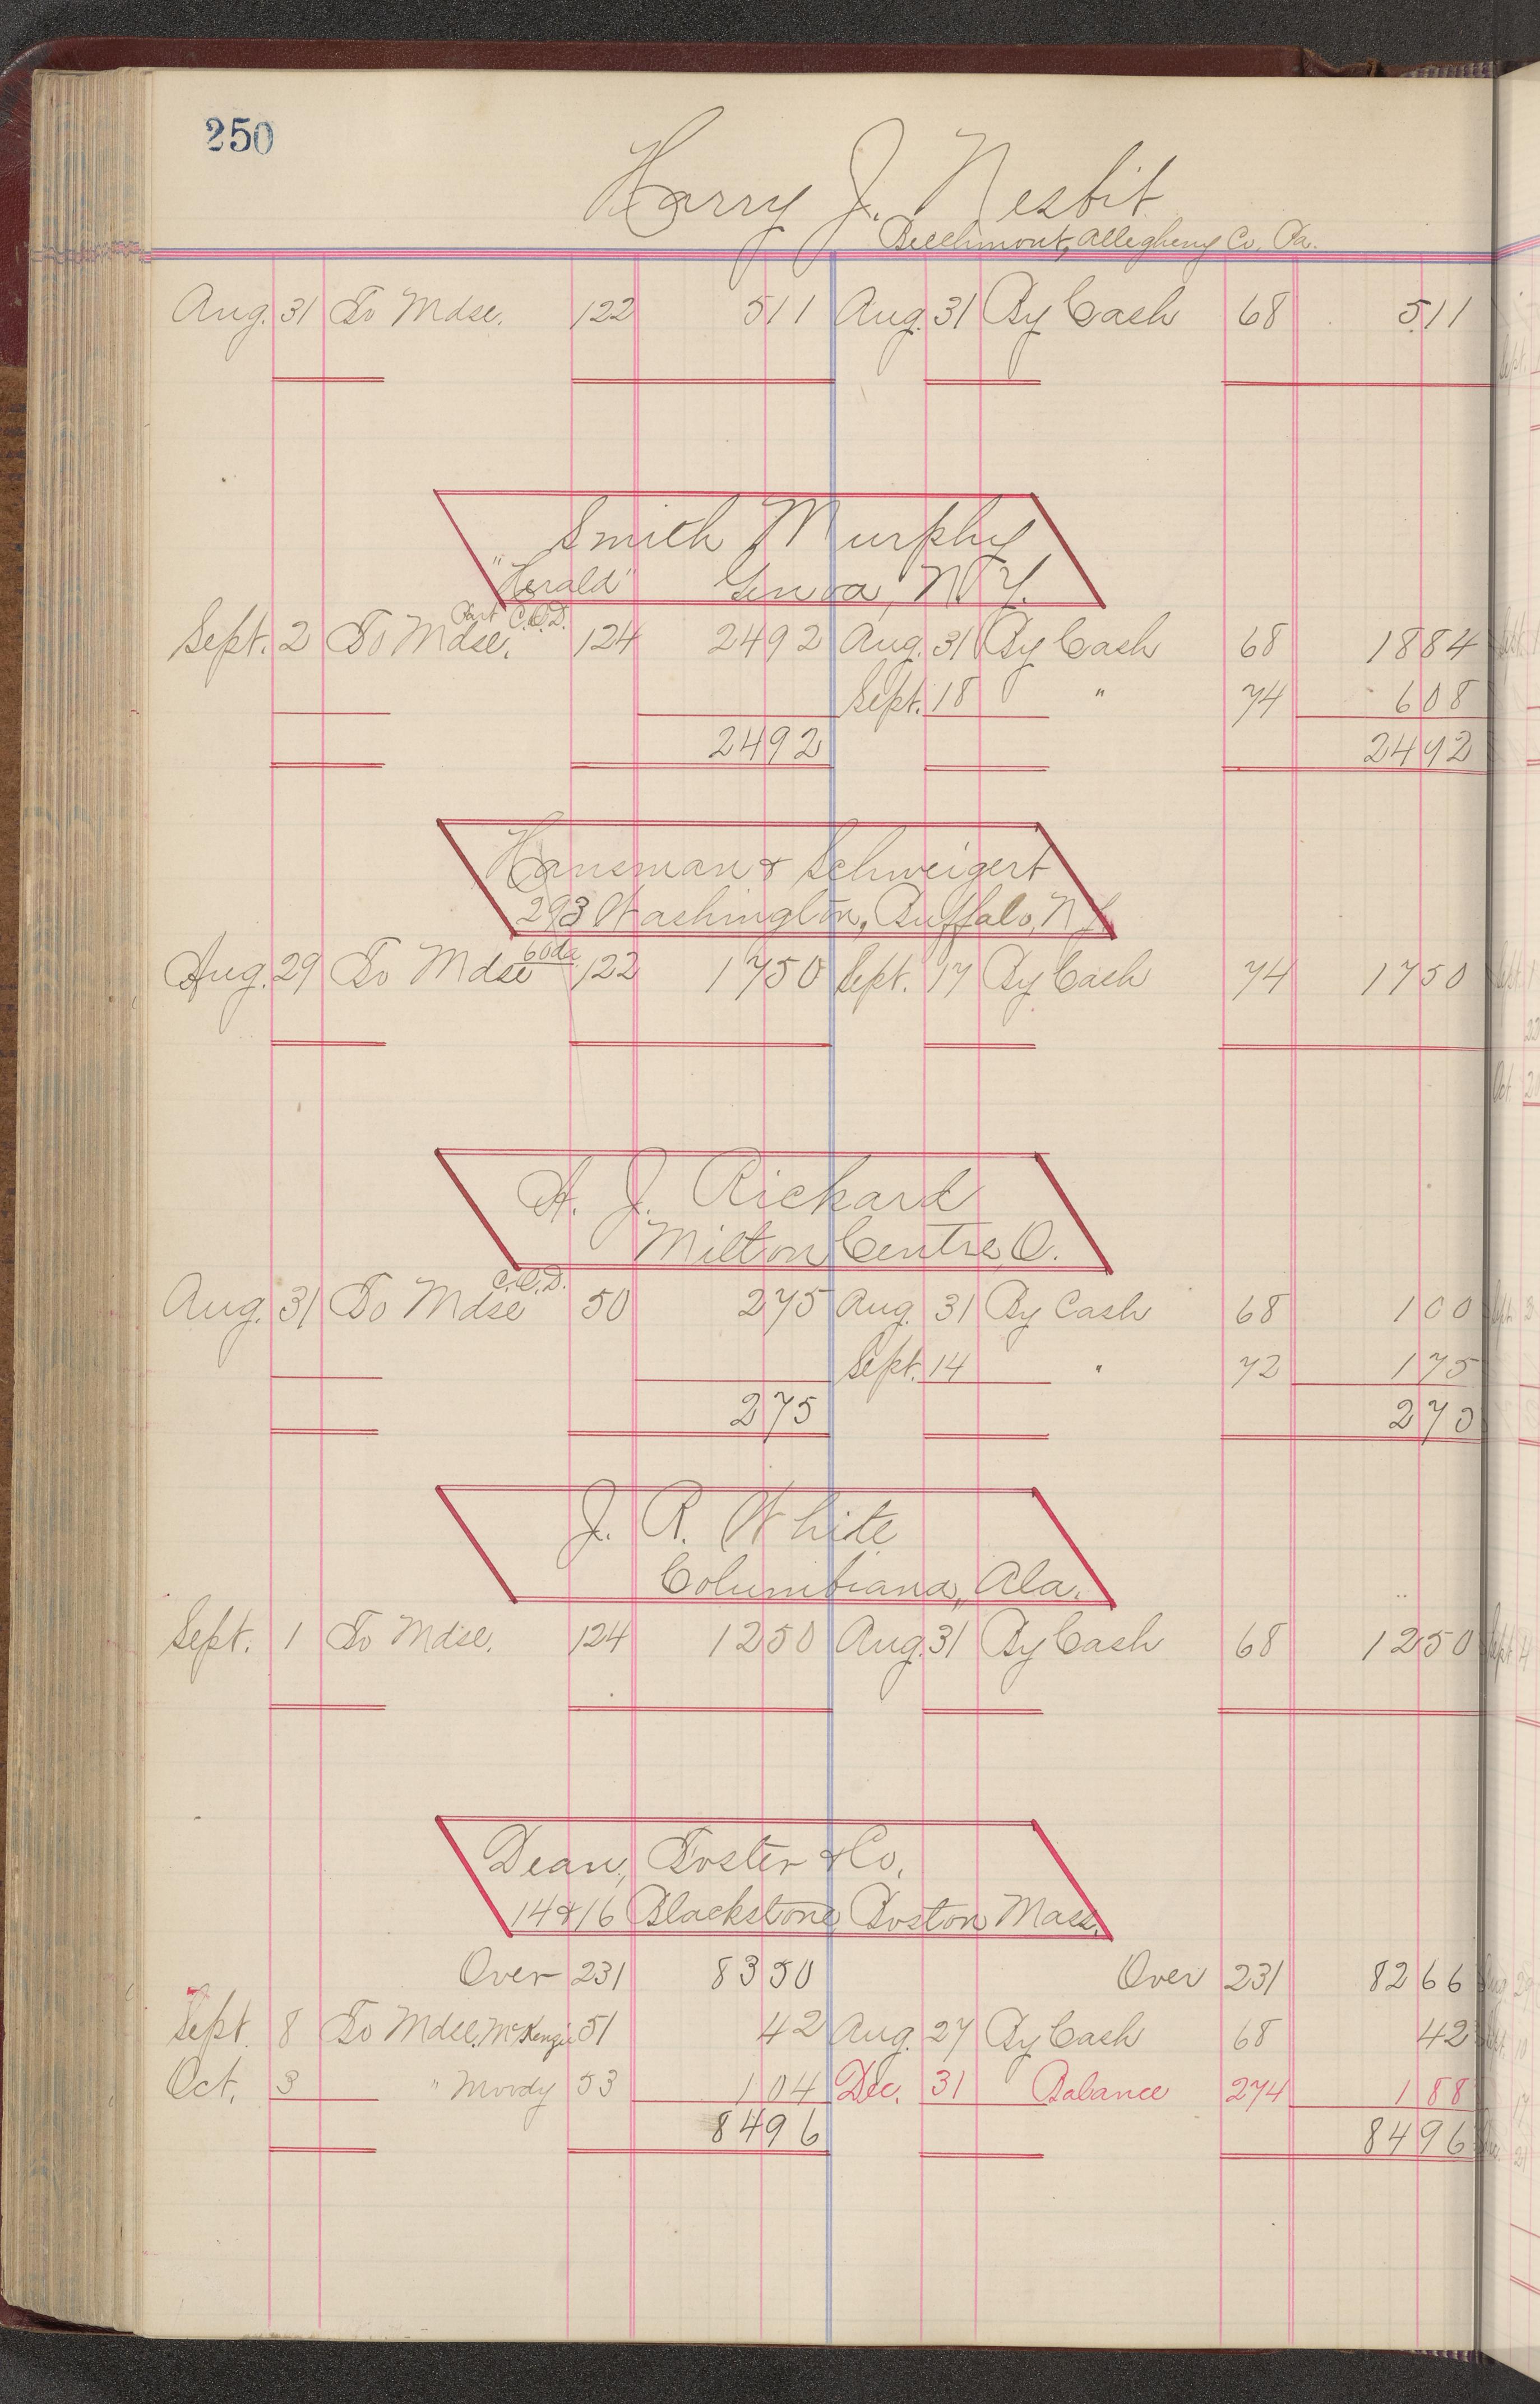 250
Harry J. Nesbit
Beechmont, Allegheny Co. Pa.
Aug. 31 To Mdse. 122 511 Aug. 31 By Cash 68 511
Smith Murphy
"Herald" Genva, N.Y.
Part C.O.D.
Sept. 2 To Mdse. 124 2492 Aug. 31 By Cash 68 1884
Sept. 18 " 74 608
2492 2492
Hansman & Schweigert
293 Washington, Buffalo, N.Y.
60da
Aug. 29 To Mdse 122 1750 Sept. 17 By Cash 74 1750
A. J. Rickard
Milton Centre, O.
C.O.D.
Aug. 31 To Mdse 50 275 Aug. 31 By Cash 68 100
Sept. 14 " 72 175
275 275
J. R. White
Columbiana, Ala.
Sept. 1 To Mdse. 124 1250 Aug. 31 By Cash 68 1250
Dean, Foster & Co.
14 & 16 Blackstone, Boston Mass.
Over 231 8350 Over 231 8266
Sept. 8 To Mdse. McKenzie 51 42 Aug. 27 By Cash 68 42
Oct. 3 " Moody 53 104 Dec. 31 Balance 274 188
8496 8496